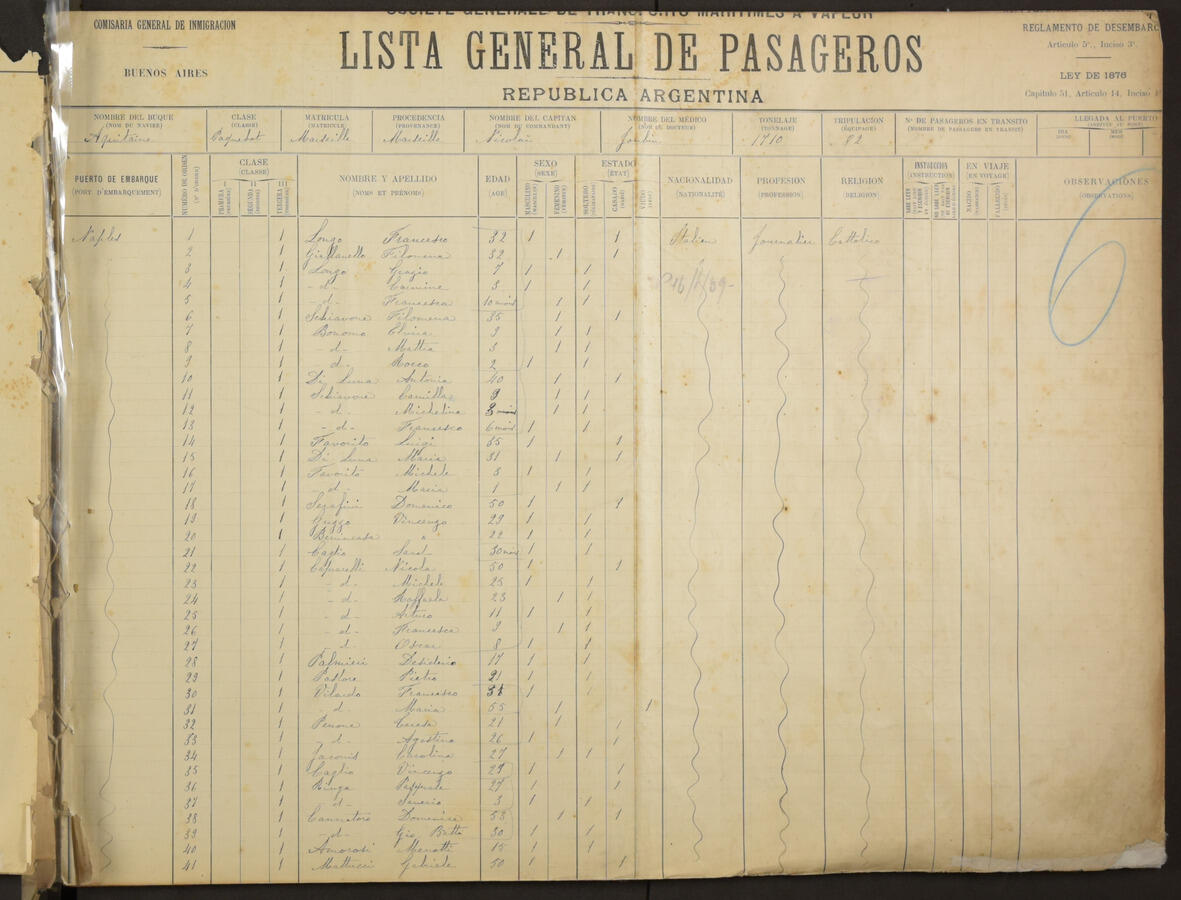 SOCIÉTÉ GÉNÉRALE DE TRANSPORTS MARITIMES A VAPEUR
COMISARIA GENERAL DE INMIGRACION
BUENOS AIRES
LISTA GENERAL DE PASAGEROS
REPUBLICA ARGENTINA
REGLAMENTO DE DESEMBARC
Artículo 5º., Inciso 3º.
LEY DE 1876
Capítulo 51, Artículo 14, Inciso
NOMBRE DEL BUQUE CLASE MATRICULA PROCEDENCIA NOMBRE DEL CAPITAN NOMBRE DEL MÉDICO TONELAJE TRIPULACIÓN Nº DE PASAGEROS EN TRANSITO LLEGADA AL PUERTO
(NOM DU NAVIRE) (CLASSE) (MATRICULE) (PROVENANCE) (NOM DU COMMANDANT) (NOM DU DOCTEUR) (TONNAGE) (ÉQUIPAGE) (NOMBRE DE PASSAGERS EN TRANSIT) DIA MES
Aquitaine Paquebot Marseille Marseille Nicolai 1710 82
PUERTO DE EMBARQUE NÚMERO DE ORDEN CLASE NOMBRE Y APELLIDO EDAD SEXO ESTADO NACIONALIDAD PROFESION RELIGION INSTRUCCION EN VIAJE OBSERVACIONES
(PORT D'EMBARQUEMENT) (CLASSE) (NOMS ET PRÉNOMS) (AGE) (SEXE) (ÉTAT) (NATIONALITÉ) (PROFESSION) (RELIGION) (INSTRUCTION) (EN VOYAGE) (OBSERVATIONS)
PRIMERA SEGUNDA TERCERA MASCULINO FEMENINO SOLTERO CASADO VIUDO NACIDO FALLECIDO
I II III
6
Naples 1 1 Longo Francesco 32 1 1 Italien Journalier Cattolico
2 1 Filomena 32 1 1
3 1 Longo 7 1 1
4 1 - d - Carmine 3 1 1
5 1 - d - Francesca 10 mois 1 1
6 1 Schiavone Filomena 35 1 1
7 1 Bonomo Elvira 9 1 1
8 1 - d - Mattia 3 1 1
9 1 d - Rocco 2 1 1
10 1 Di Luna Antonia 40 1 1
11 1 Schiavone Camilla 9 1 1
12 1 - d - Michelina 1 1
13 1 - d - Francesco 6 mois 1 1
14 1 Favorito Luigi 35 1 1
15 1 Di Luna Maria 31 1 1
16 1 Favorito Michele 3 1 1
17 1 d - Maria 1 1 1
18 1 Serafini Domenico 50 1 1
19 1 Vincenzo 29 1 1
20 1 " 22 1 1
21 1 Caglio 1
22 1 Nicola 50 1 1
23 1 - d - Michele 25 1 1
24 1 - d - Raffaela 23 1 1
25 1 - d - Arturo 11 1 1
26 1 - d - Francesca 9 1 1
27 1 d - Oscar 8 1 1
28 1 Palmieri Desiderio 17 1 1
29 1 Pastore Pietro 21 1 1
30 1 Vilardo Francesco 1
31 1 - d - Maria 55 1 1
32 1 Perrone Teresa 21 1 1
33 1 - d - Agostino 26 1 1
34 1 Carolina 27 1 1
35 1 Caglio Vincenzo 29 1 1
36 1 Pasquale 27 1 1
37 1 - d - Saverio 3 1 1
38 1 Cannataro Domenica 53 1 1
39 1 - d - Gio Batta 30 1 1
40 1 Amorosi Menotti 15 1 1
41 1 Mattucci Gabriele 50 1 1